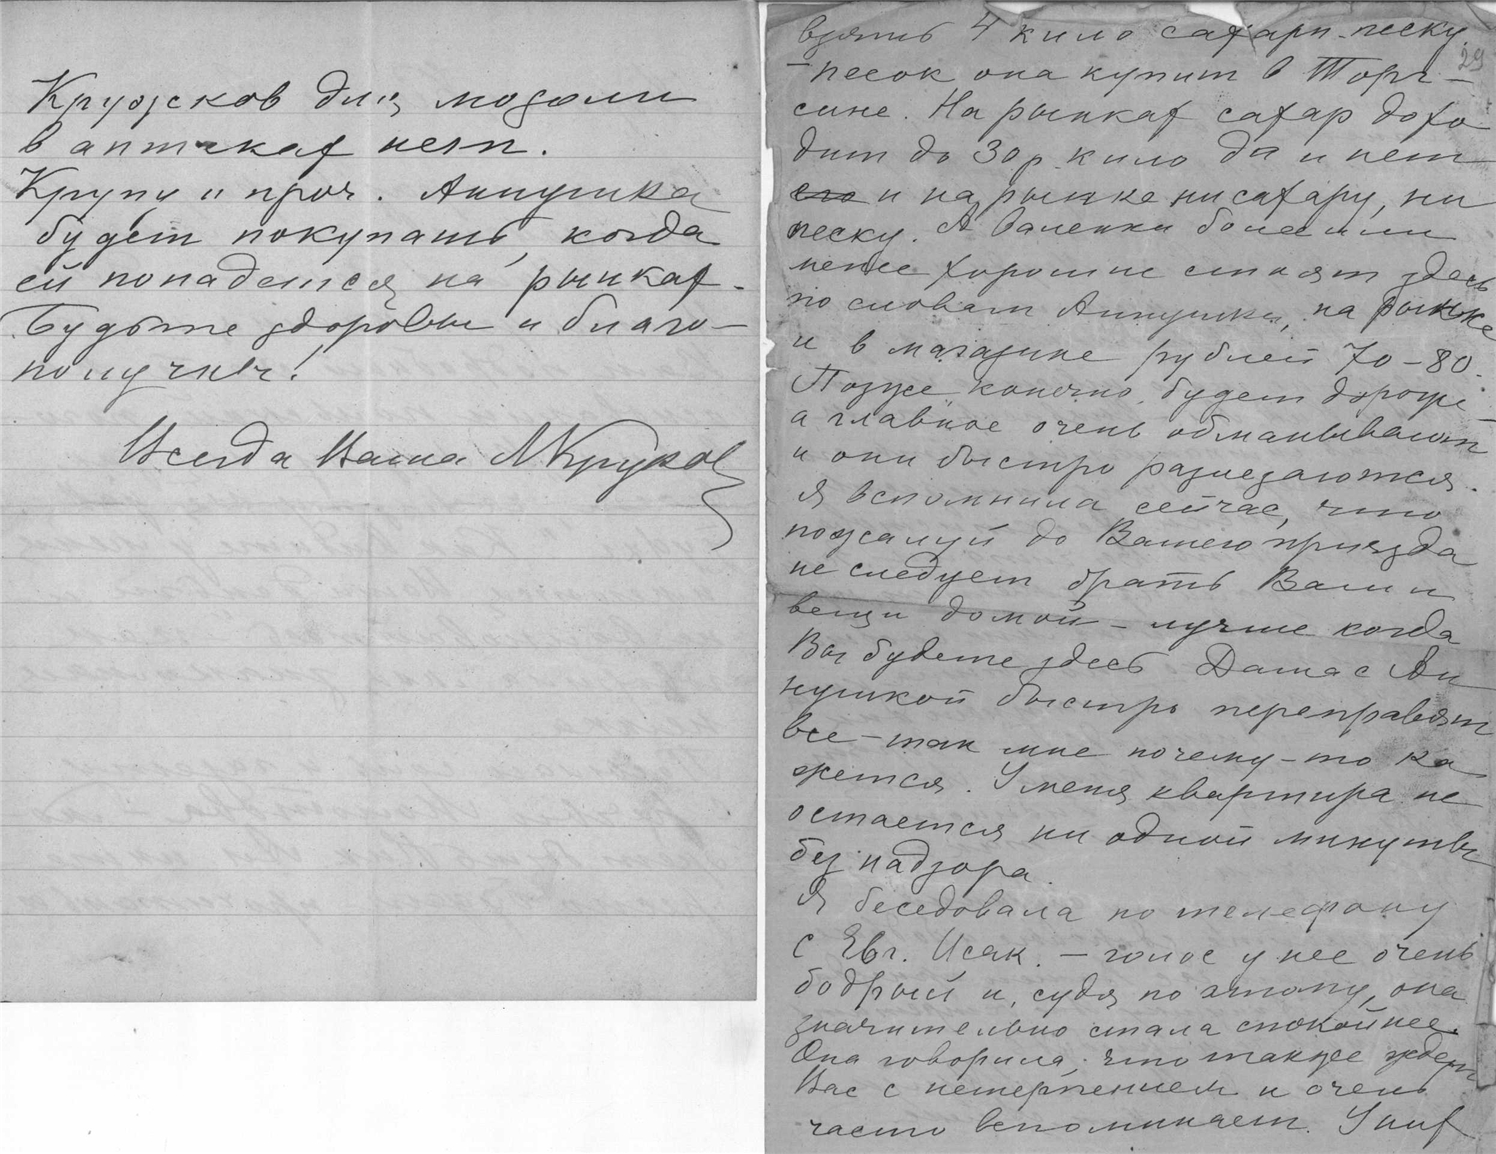 Кружсков для мозоли
в аптеках нет.
Крупу и проч. Аннушка
будет покупать, когда
ей попадется на рынках.
Будьте здоровы и благо-
получны!
Всегда Ваша МКрукова
29
взять 4 кило сахарн. песку
– песок она купит в Торг-
сине. На рынках сахар дохо
дит до 30 р. кило да и нет
его и на рынке ни сахару, ни
песку. А валенки более или
менее хорошие стоят здесь
по словам Аннушки, на рынке
и в магазине рублей 70–80.
Позже конечно, будет дороже –
а главное очень обманывают
и они быстро разлезаются.
Я вспомнила сейчас, что
пожалуй до Вашего приезда
не следует брать Ваши
вещи домой – лучше когда
Вы будете здесь Даша с Ан
нушкой быстро переправят
все – так мне почему-то ка
жется. У меня квартира не
остается ни одной минуты
без надзора.
Я беседовала по телефону
с Евг. Исак. – голос у нее очень
бодрый и, судя по этому, она
значительно стала спокойнее.
Она говорила, что также ждет
Вас с нетерпением и очень
часто вспоминает. У них